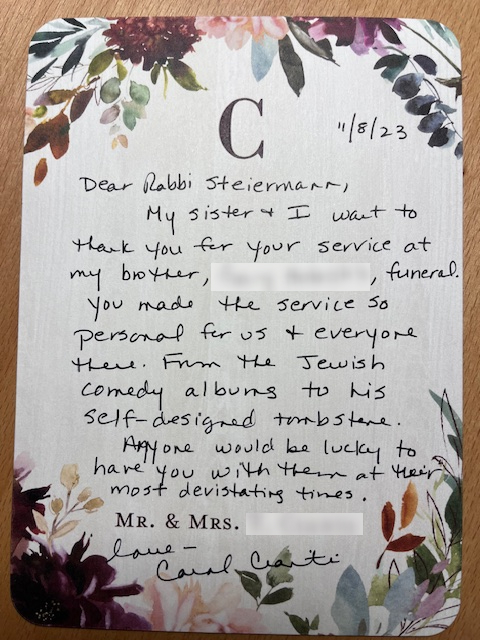 C
11/8/23
Dear Rabbi Steiermann,
My sister & I want to
thank you for your service at
my brother, , funeral.
You made the service so
personal for us & everyone
there. From the Jewish
comedy albums to his
self-designed tombstone.
Anyone would be lucky to
have you with them at their
most devistating times.
MR. & MRS.
love -
Carol